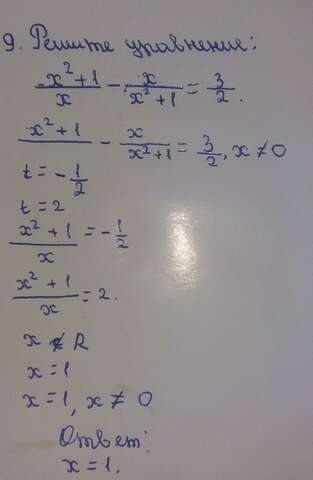 9. Решите уравнение:
x²+1/x - x/x²+1 = 3/2.
x²+1/ - x/x²+1 = 3/2, x ≠ 0
t = - 1/2
t = 2
x²+1/x = - 1/2
x²+1/x = 2.
x ∉ R
x = 1
x = 1, x ≠ 0
Ответ:
x = 1.